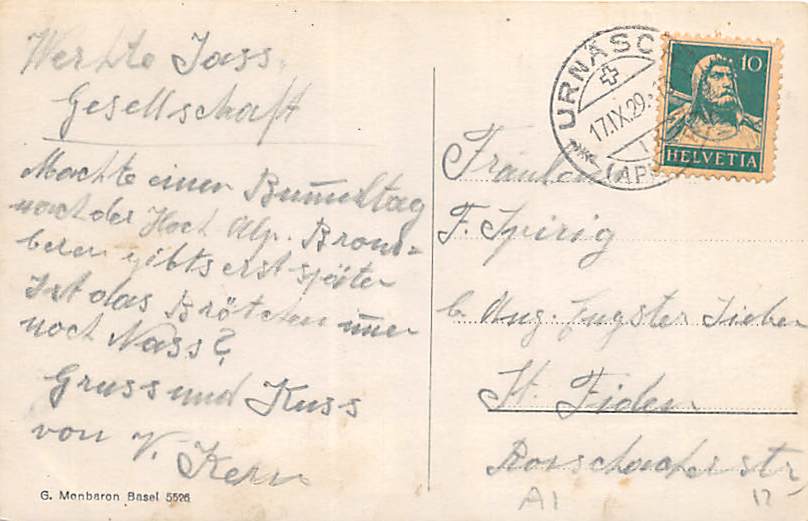 Werhte Jass
Gesellschaft
Machte einen Bummeltag
nach der Hoch Alp. Brom=
beren gibts erst später
Ist das Brötchen immer
noch Nass?
Gruss und Kuss
von V. Kern
G. Monbaron Basel 5526
URNÄSCH
17.IX.29.
(APP
10
HELVETIA
Fräulein
F. Spirig
b. Aug. Engster
St. Fiden
Rorschacherstr,
A1
12